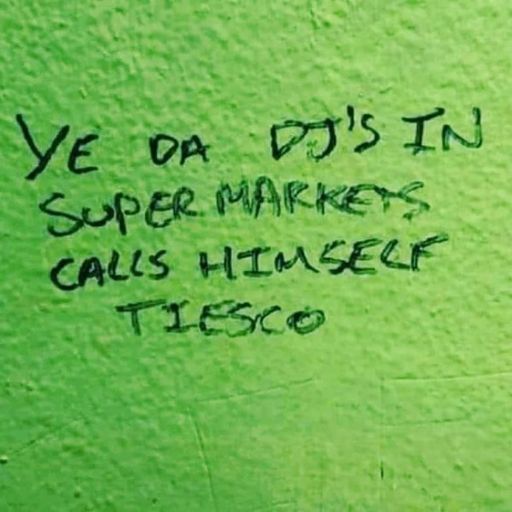 YE DA DJ'S IN
SUPER MARKETS
CALLS HIMSELF
TIESCO